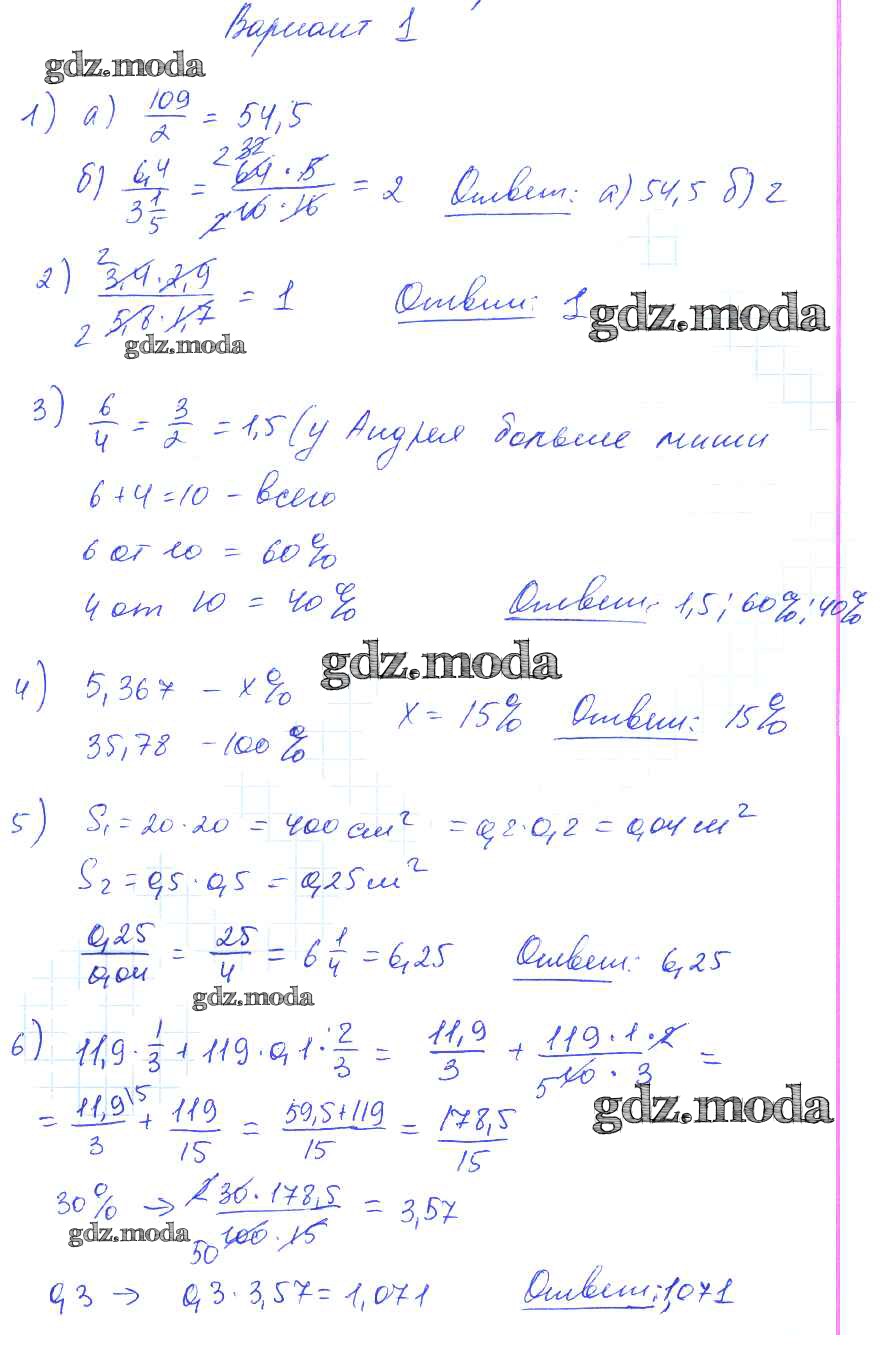 Вариант 1
gdz.moda
1) а) 109/2 = 54,5
б) 6,4/3 1/5 = 64·5/10·16 = 2 Ответ: а) 54,5 б) 2
2) 3,4·2,9/5,8·1,7 = 1 Ответ: 1
gdz.moda
gdz.moda
3) 6/4 = 3/2 = 1,5 (у Андрея больше миши
6+4=10 – всего
6 от 10 = 60%
4 от 10 = 40% Ответ: 1,5; 60%; 40%
gdz.moda
4) 5,367 – x% x = 15% Ответ: 15%
35,78 – 100%
5) S₁ = 20·20 = 400 см² = 0,2·0,2 = 0,04 м²
S₂ = 0,5·0,5 = 0,25 м²
0,25/0,04 = 25/4 = 6 1/4 = 6,25 Ответ: 6,25
gdz.moda
6) 11,9·1/3 + 119·0,1·2/3 = 11,9/3 + 119·1·2/10·3 =
gdz.moda
= 11,9\5/3 + 119/15 = 59,5+119/15 = 178,5/15
30% → 30·178,5/100·15 = 3,57
gdz.moda
0,3 → 0,3·3,57 = 1,071 Ответ: 1,071